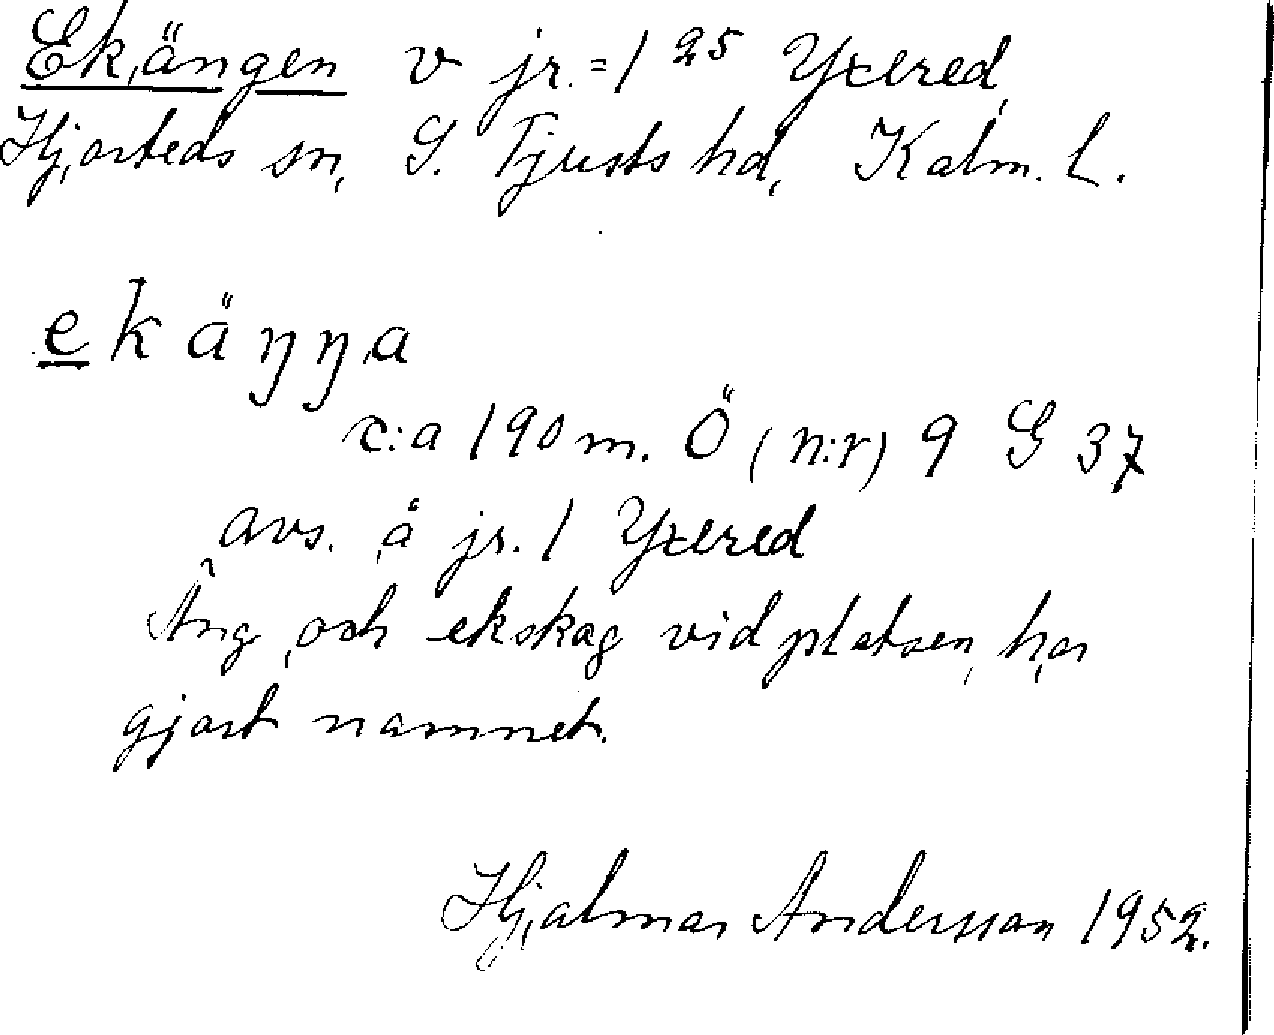 Ekängen v jr. = 1 25 Yxered,
Hjorteds sn, S. Tjusts hd, Kalm. L.
ekäŋŋa
c:a 190 m. Ö (n:r) 9 G 37
avs. å jr. 1 Yxered
Äng och ekskog vid platsen har
gjort namnet.
Hjalmar Andersson 1952.